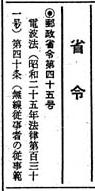 省令
◉郵政省令第四十五号
電波法(昭和二十五年法律第百三十
一号)第四十条(無線従事者の従事範